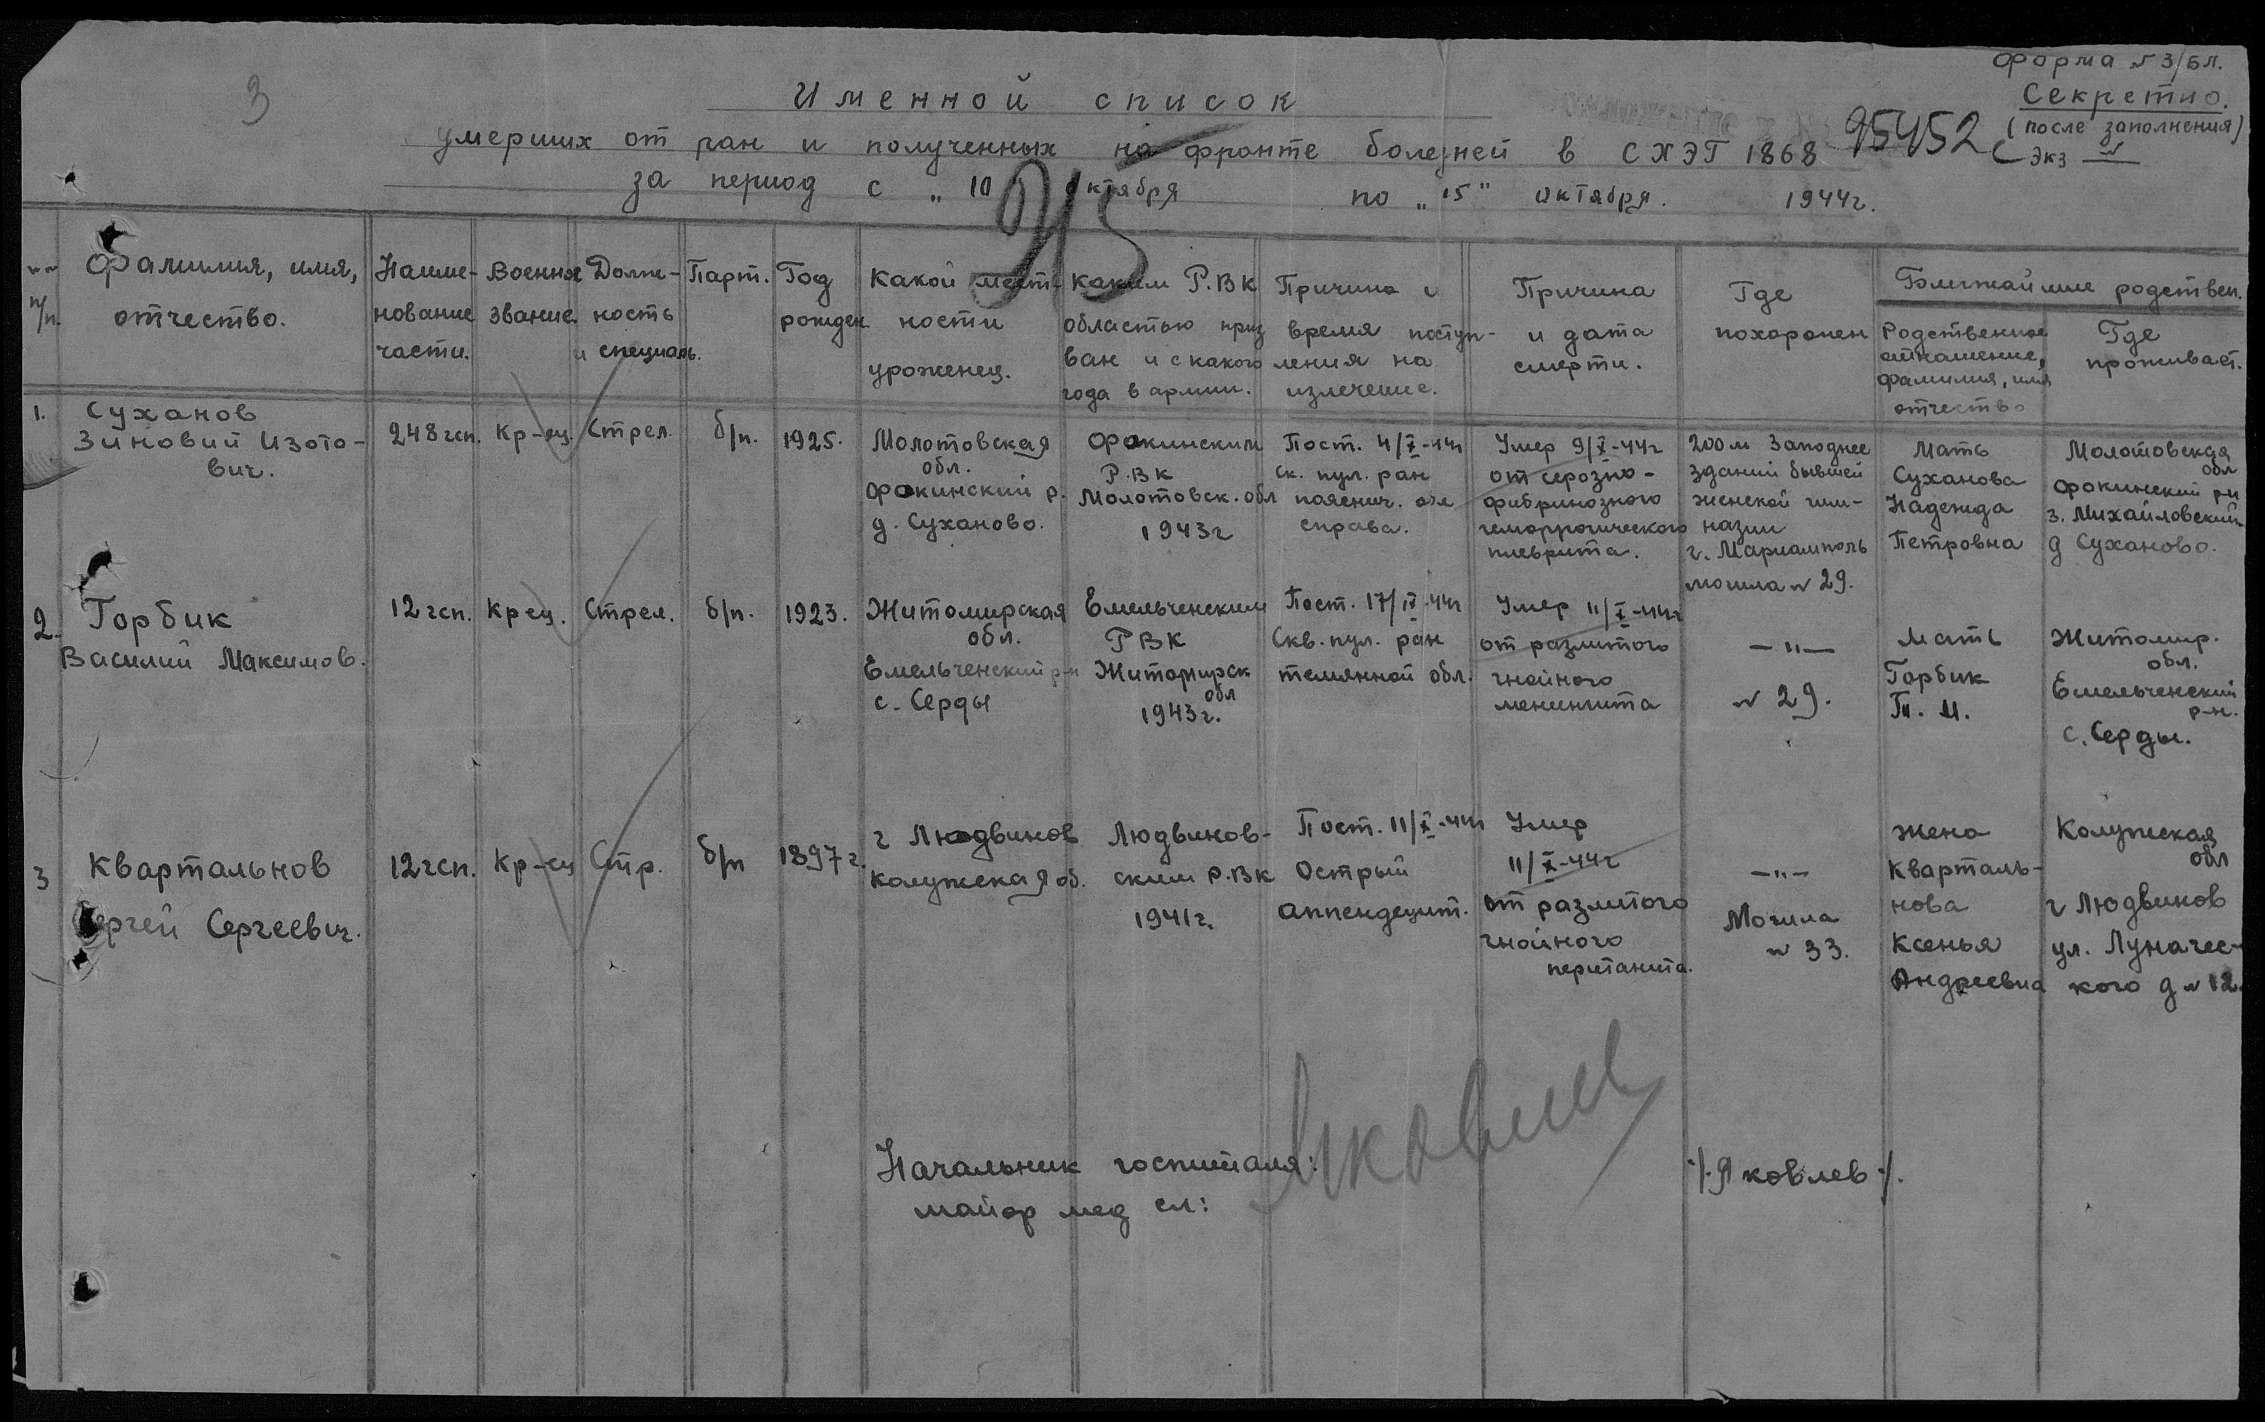 3
Форма № 3/БЛ.
Секретно.
(после заполнения)
Экз №
95452с
Именной список
умерших от ран и полученных на фронте болезней в СХЭГ 1868
за период с „10" октября по „15" октября. 1944г.
№№ п/п.
Фамилия, имя,
отчество.
Наиме-
нование
части.
Военное
звание.
Долж-
ность
и специаль.
Парт.
Год
рожден
Какой мест-
ности
уроженец.
Каким Р.ВК
областью приз
ван и с какого
года в армии.
Причина и
время поступ-
ления на
излечение.
Причина
и дата
смерти.
Где
похоронен
Ближайшие родствен.
Родственное
отношение,
фамилия, имя
отчество
Где
проживает.
1.
Суханов
Зиновий Изото-
вич.
248 гсп.
Кр-ец.
Стрел.
б/п.
1925.
Молотовская
обл.
Фокинский р.
д. Суханово.
Фокинским
Р.ВК
Молотовск. обл
1943г
Пост. 4/X-44г
ск. пул. ран
пояснич. обл
справа.
Умер 9/X-44г
от серозно-
фибринозного
геморрогического
плеврита.
200м Западнее
зданий бывшей
женской гим-
назии
г. Мариамполь
могила № 29.
Мать
Суханова
Надежда
Петровна
Молотовская
обл
Фокинский р-н
з. Михайловский
д Суханово.
2.
Горбик
Василий Максимов.
12 гсп.
Кр ец.
Стрел.
б/п.
1923.
Житомирская
обл.
Емельченский р-н
с. Серды
Емельченским
РВК
Житомирск
обл
1943г.
Пост. 17/IX-44г
Скв. пул. ран
темянной обл.
Умер 11/X-44г
от разлитого
гнойного
менингита
—"—
№ 29.
Мать
Горбик
П. М.
Житомир.
обл.
Емельченский
р-н.
с. Серды.
3
Квартальнов
Сергей Сергеевич.
12 гсп.
Кр-ец
Стр.
б/п
1897 г.
г Людвинов
Калужская об.
Людвинов-
ским Р.ВК
1941г.
Пост. 11/X-44г
Острый
аппендецит.
Умер
11/X-44г
от разлитого
гнойного
пеританита.
—"—
Могила
№ 33.
Жена
Кварталь-
нова
Ксенья
Андреевна
Калужская
обл
г Людвинов
ул. Луначес-
кого д № 12.
Начальник госпиталя:
майор мед сл:
Яковлев
/Яковлев/.